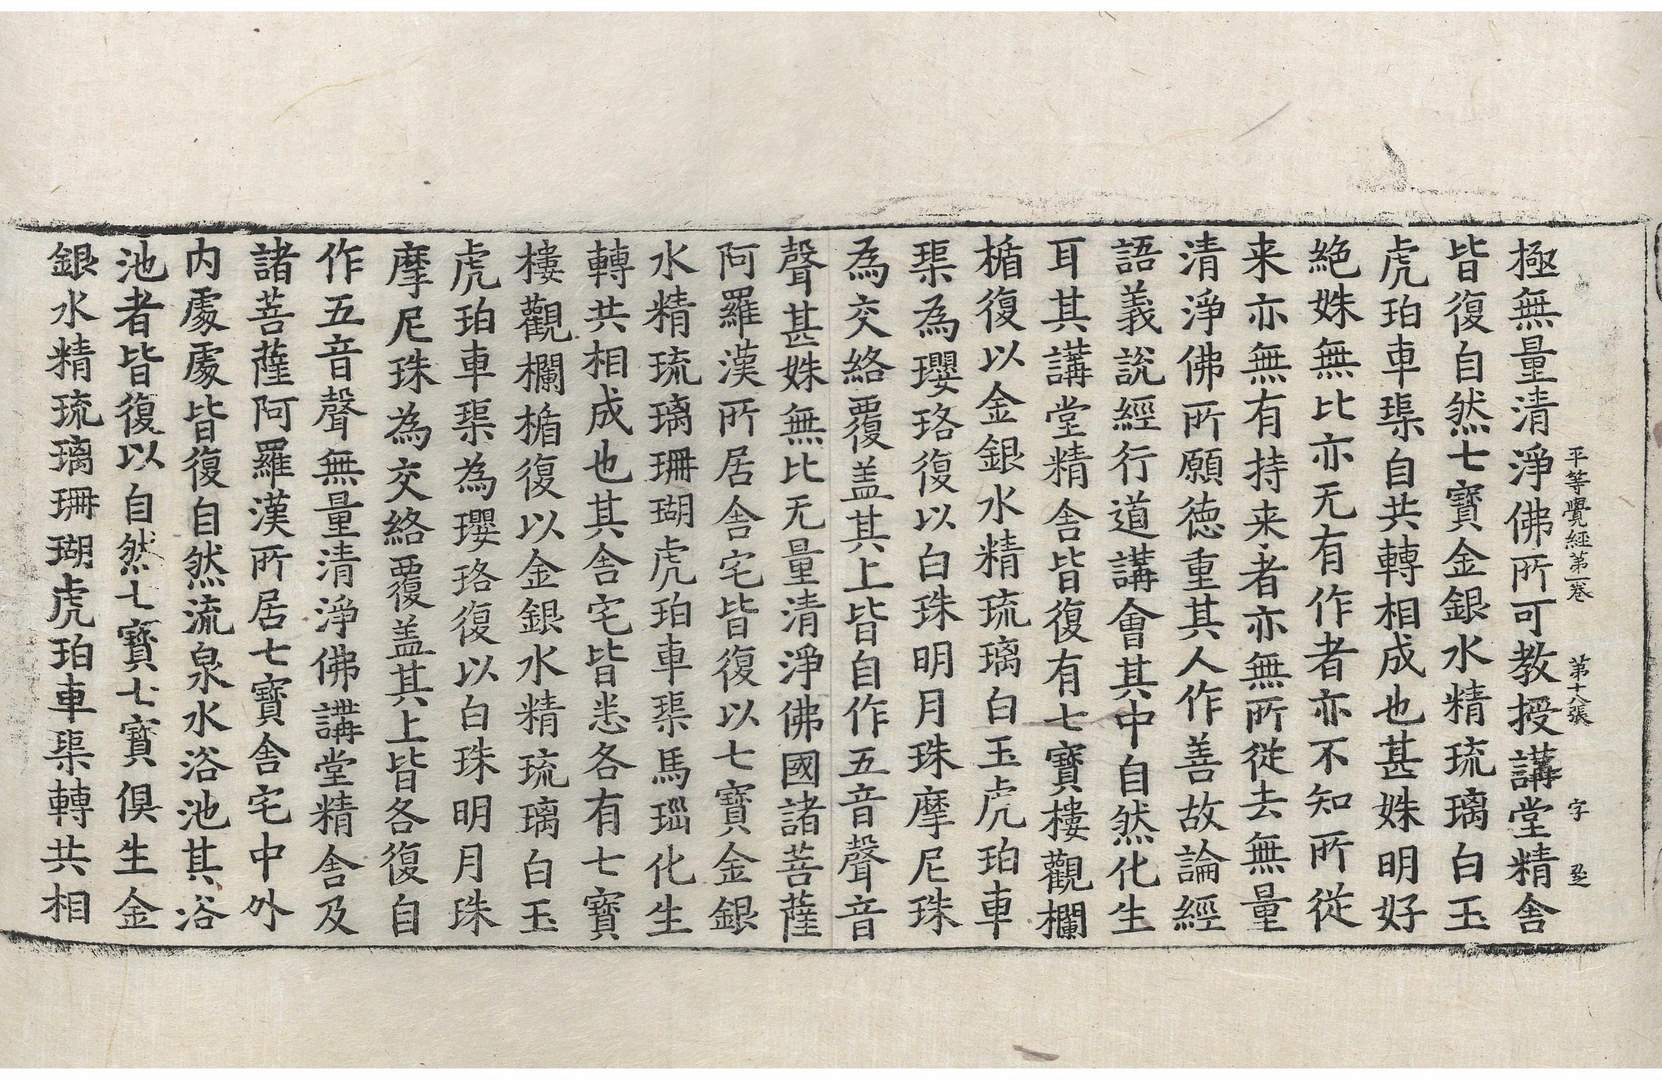 平等覺經第一卷　第十八張　字　𢀖
極無量清淨佛所可教授講堂精舍
皆復自然七寶金銀水精琉璃白玉
虎珀車𤦲自共轉相成也甚姝明好
絶姝無比亦无有作者亦不知所從
来亦無有持来者亦無所從去無量
清淨佛所願德重其人作善故論經
語義說經行道講會其中自然化生
耳其講堂精舍皆復有七寶樓觀欄
楯復以金銀水精琉璃白玉虎珀車
𤦲為瓔珞復以白珠明月珠摩尼珠
為交絡覆盖其上皆自作五音聲音
聲甚姝無比无量清淨佛國諸菩薩
阿羅漢所居舍宅皆復以七寶金銀
水精琉璃珊瑚虎珀車𤦲馬瑙化生
轉共相成也其舍宅皆悉各有七寶
樓觀欄楯復以金銀水精琉璃白玉
虎珀車𤦲為瓔珞復以白珠明月珠
摩尼珠為交絡覆盖其上皆各復自
作五音聲無量清淨佛講堂精舍及
諸菩薩阿羅漢所居七寶舍宅中外
內處處皆復自然流泉水浴池其浴
池者皆復以自然七寶七寶俱生金
銀水精琉璃珊瑚虎珀車𤦲轉共相